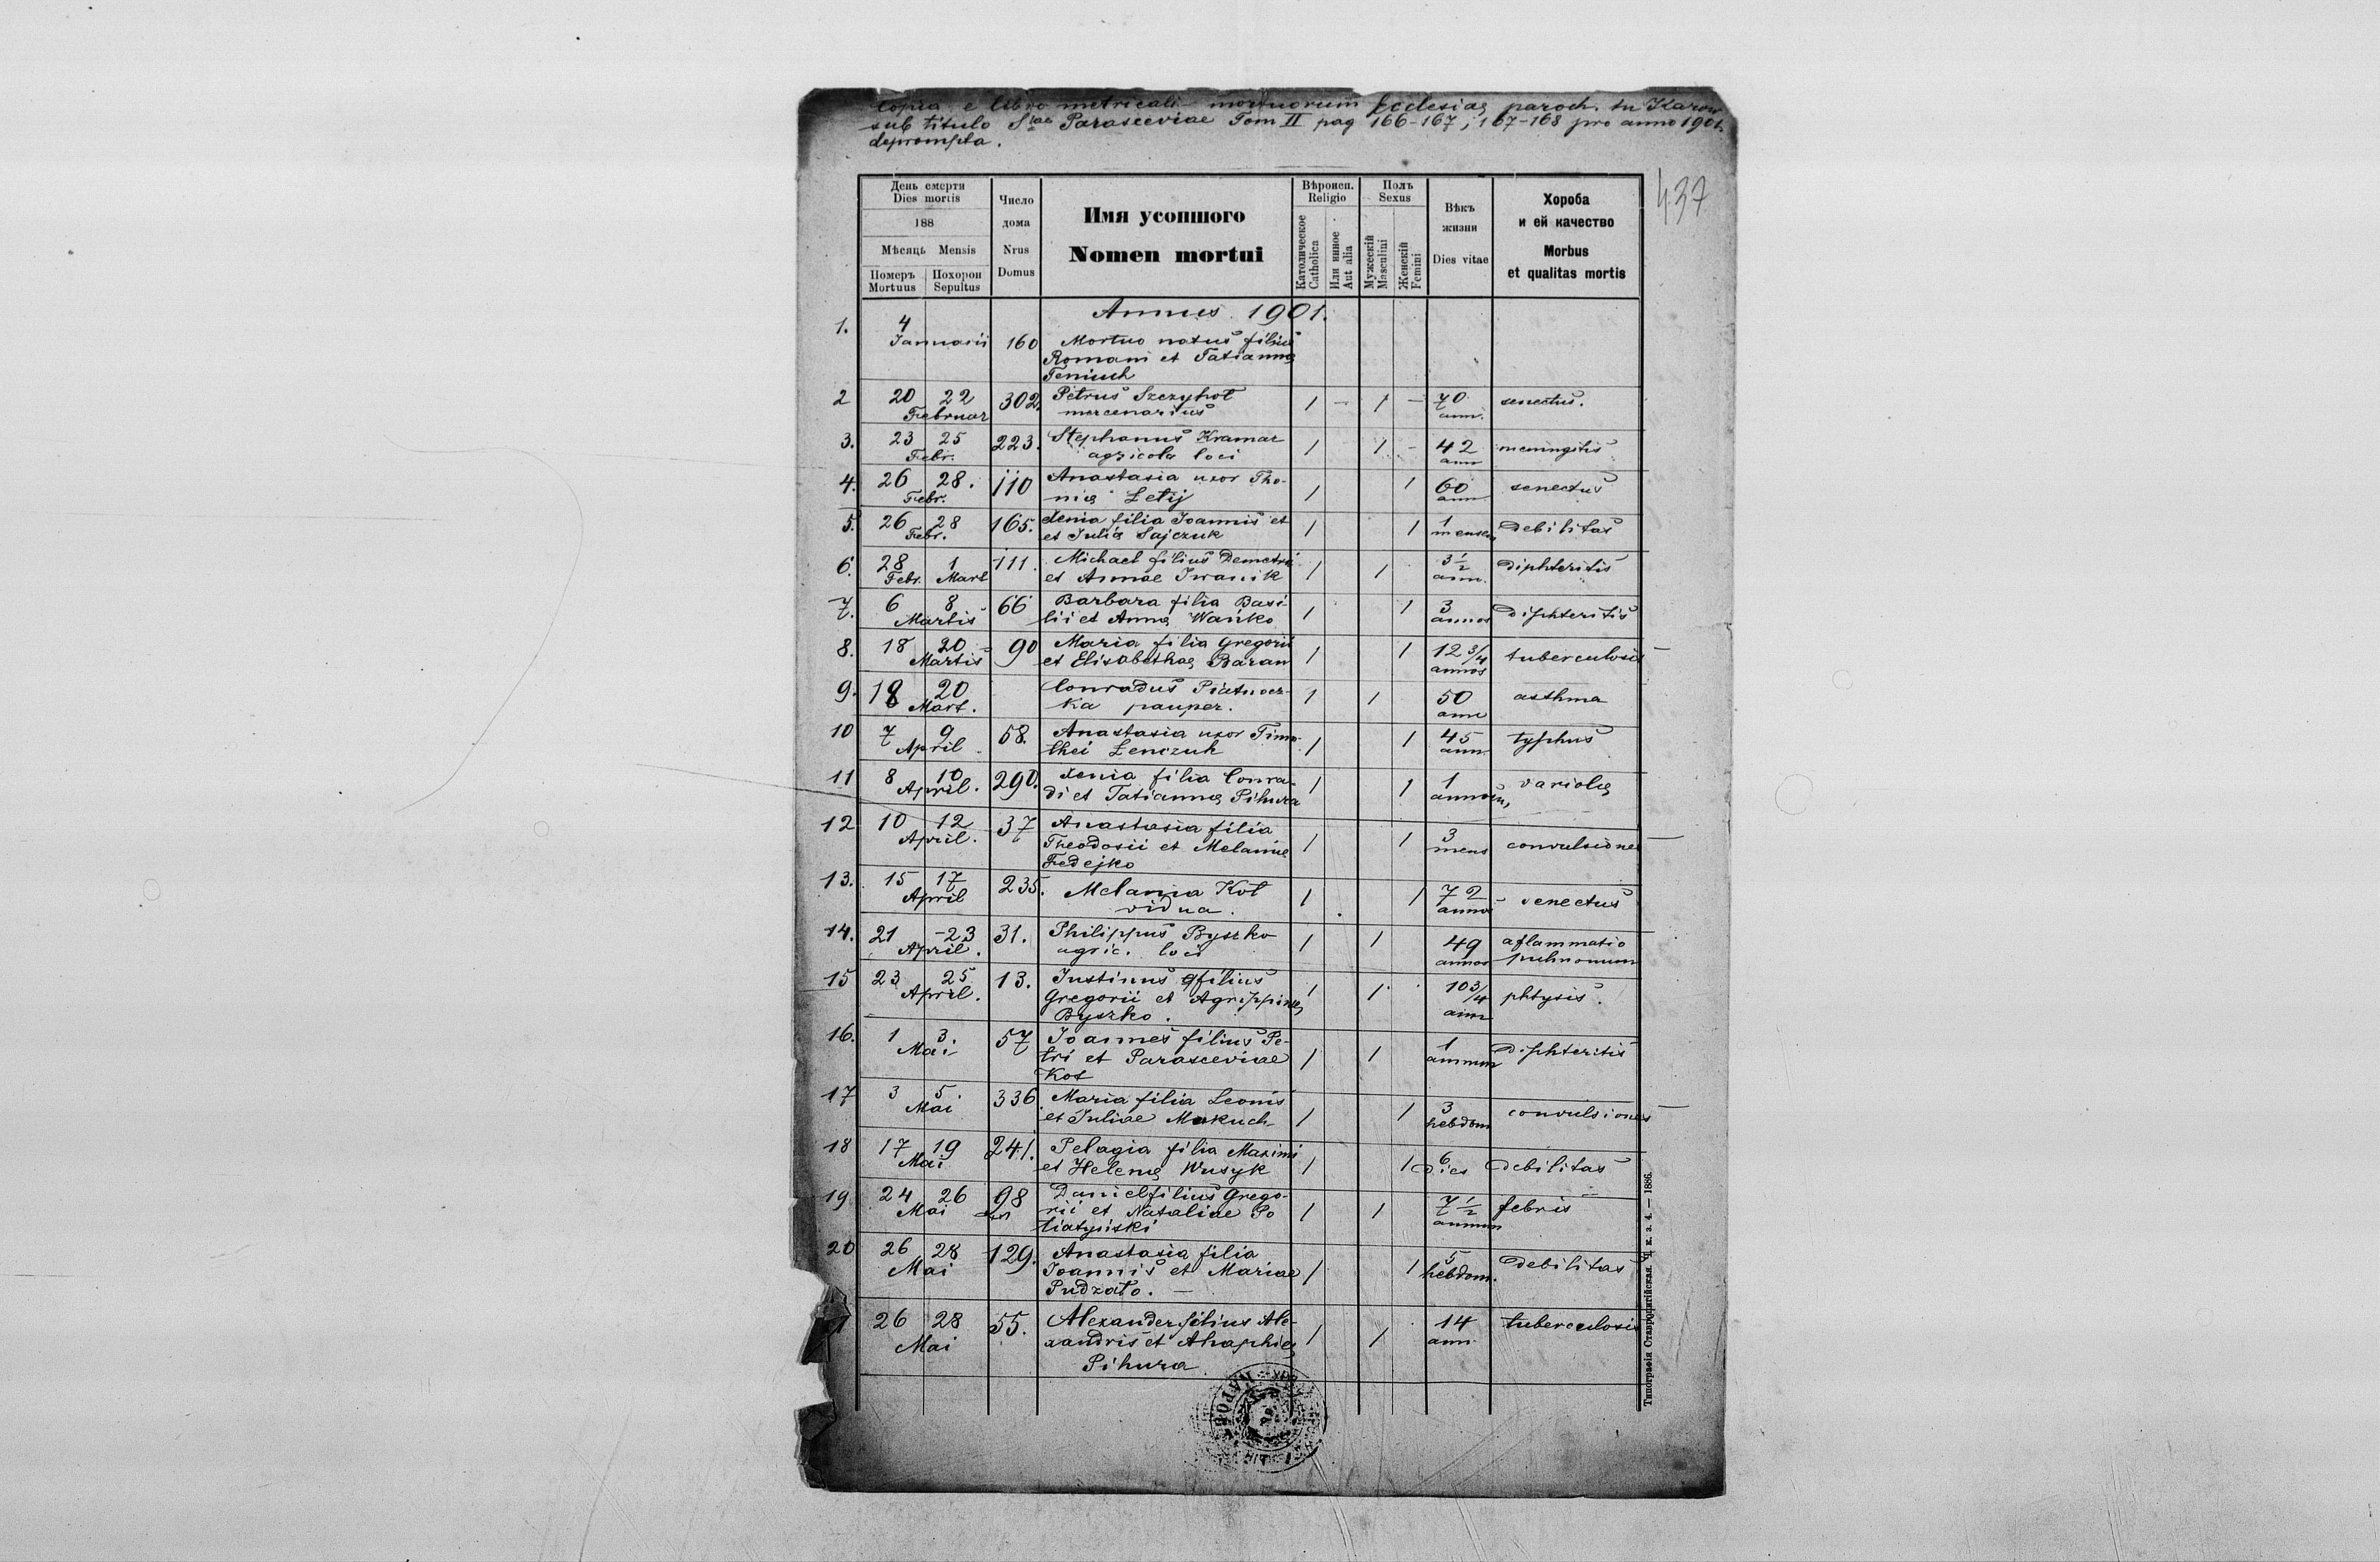 Copia e libro metricali mortuorum Ecclesiae paroch. in Karow
sub titulo Stae Parasceviae Tom II pag 166-167; 167-168 pro anno 1901.
deprompta.
437
День смерти
Dies mortis
188
Мѣсяць Mensis
Померъ Похорон
Mortuus Sepultus
Число
дома
Nrus
Domus
Имя усопшого
Nomen mortui
Вѣроисп.
Religio
Католическое
Catholica
Или инное
Aut alia
Полъ
Sexus
Мужескій
Masculini
Женскій
Femini
Вѣкъ
жизни
Dies vitae
Хороба
и ей качество
Morbus
et qualitas mortis
Annus 1901.
1. 4
Januarii 160 Mortuo natus filius
Romani et Tatianna
Feniuch
2 20 22 302. Petrus Szczyhot 1 - 1 - 70 senectus.
Februar mercenarius ann.
3. 23 25 223. Stephanus Kramar 1 1 - 42 meningitis
Febr. agricola loci ann
4. 26 28. 110 Anastasia uxor Tho- 1 1 60 senectus
Febr. mie Letij ann
5. 26 28 165. Xenia filia Joannis et 1 1 1 debilitas
Febr. et Julia Sajczuk mensem
6. 28 1 111. Michael filius Demetrii 1 1 3 1/2 diphteritis
Febr. Mart et Annae Iwanik ann.
7. 6 8 66 Barbara filia Basi- 1 1 3 diphteritis
Martis lii et Anna Wańko annos
8. 18 20 90 Maria filia Gregorii 1 1 12 3/4 tuberculosis
Martis et Elisabethae Baran annos
9. 18 20 Conradus Piatnocz- 1 1 50 asthma
Mart. ka pauper. ann
10 7 9 58. Anastasia uxor Timo- 1 1 45 typhus
April thei Lenczuk ann
11 8 10 290. Xenia filia Conra- 1 1 1 variola
April. di et Tatianna Pihura annum,
12 10 12 37 Anastasia filia 1 1 3 convulsiones
April. Theodosii et Melanie mens
Fedejko
13. 15 17 235. Melania Kot 1 1 72 senectus
April vidua. annos
14. 21 -23 31. Philippus Byszko 1 1 49 aflammatio
April. agric. loci annos pulmonum
15 23 25 13. Justinus filius 1 1 10 3/4 phtysis.
April. Gregorii et Agrippinae ann
Byszko.
16. 1 3. 57 Joannes filius Pe- 1 1 1 diphteritis
Mai tri et Parasceviae annum
Kot
17 3 5 336 Maria filia Leonis 1 1 3 convulsiones
Mai et Juliae Makuch hebdom
18 17 19 241. Pelagia filia Maximi 1 1 6 debilitas
Mai et Helena Wusyk dies
19 24 26 98 Daniel filius Grego- 1 1 7 1/2 febris
Mai rii et Nataliae Po annum
liatyński
20 26 28 129. Anastasia filia 1 1 5 debilitas
Mai Joannis et Mariae hebdom.
Pudzało. -
26 28 55. Alexander filius Ale- 1 1 14 tuberculosis
Mai xandris et Ahaphia ann.
Pihura
Типографія Ставропигійская. Ч. к. з. 4. — 1886.